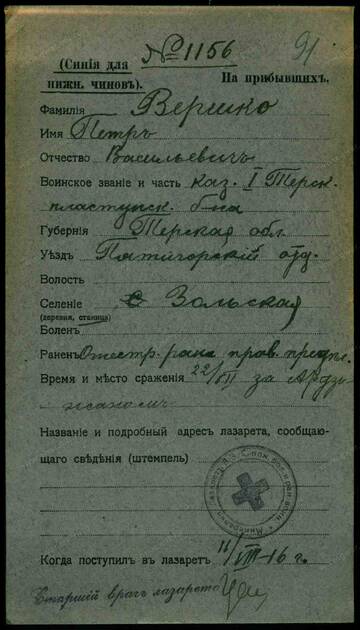 № 1156
91
(Синія для
нижн. чиновъ).
На прибывшихъ.
Фамилія Вершко
Имя Петръ
Отчество Васильевичъ
Воинское званіе и часть каз. I Терск.
пластунск. б-на
Губернія Терская обл.
Уѣздъ Пятигорскій отд.
Волость
Селеніе с Зольская
(деревня, станица)
Боленъ
Раненъ Огнестр. рана прав. предпл.
Время и мѣсто сраженія 22/VII за Ардзи
жаномъ
Названіе и подробный адресъ лазарета, сообщаю-
щаго свѣдѣнія (штемпель)
Когда поступилъ въ лазаретъ 11/VIII-16 г.
Старшій врачъ лазарета